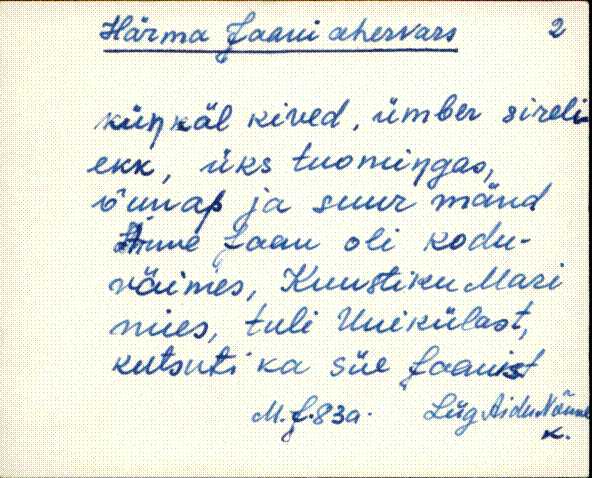 Härma Jaani ahervars 2
küŋkäl kived, ümber sireli-
ekk, üks tuomiŋgas,
õunap ja suur mänd
Änne Jaan oli kodu-
väimes, Kuustiku Mari
mies, tuli Unikülast,
kutsuti ka süe Jaanist
M. J. 83a. Lüg Aidu Nõmme
k.